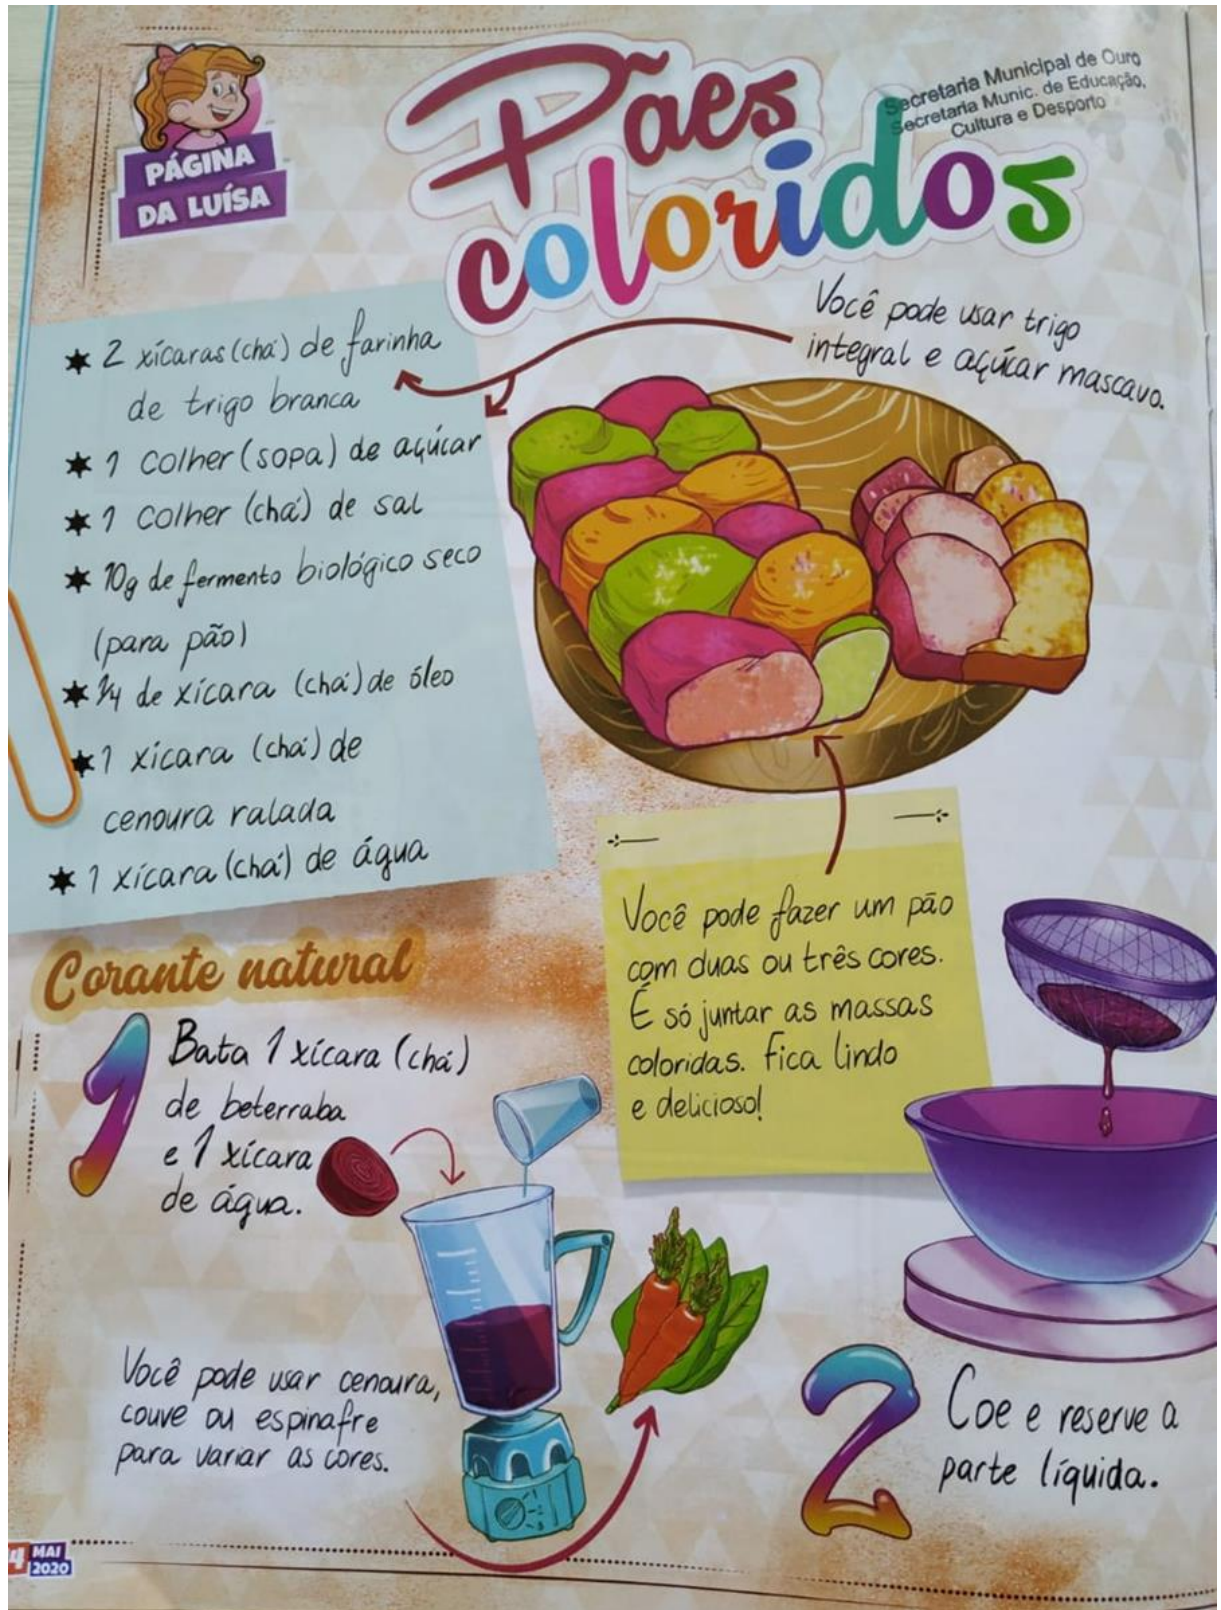 PÁGINA
DA LUÍSA
Pães
coloridos
Secretaria Municipal de Ouro
Secretaria Munic. de Educação,
Cultura e Desporto
Você pode usar trigo
integral e açúcar mascavo.
2 xícaras (chá) de farinha
de trigo branca
1 colher (sopa) de açúcar
1 colher (chá) de sal
10g de fermento biológico seco
(para pão)
1/4 de xícara (chá) de óleo
1 xícara (chá) de
cenoura ralada
1 xícara (chá) de água
Você pode fazer um pão
com duas ou três cores.
É só juntar as massas
coloridas. Fica lindo
e delicioso!
Corante natural
1
Bata 1 xícara (chá)
de beterraba
e 1 xícara
de água.
Você pode usar cenoura,
couve ou espinafre
para variar as cores.
2
Coe e reserve a
parte líquida.
4 MAI
2020